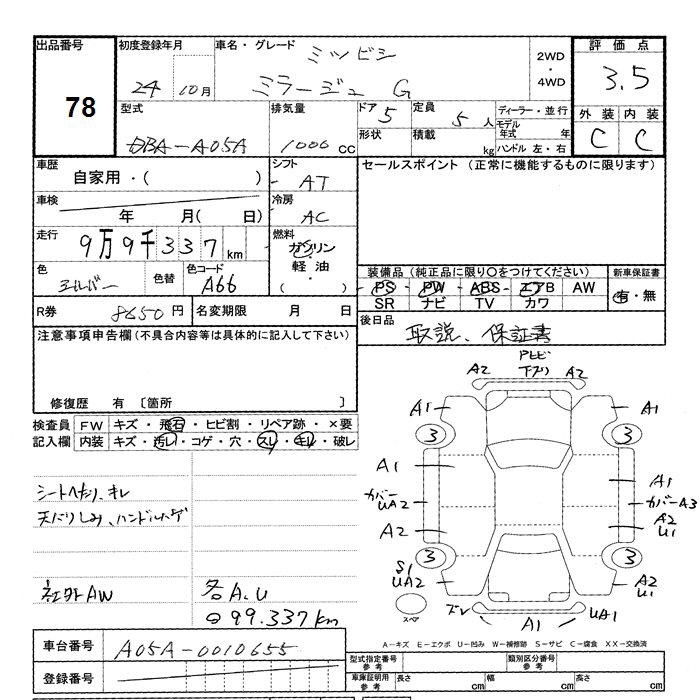 出品番号
78
初度登録年月
24 10月
車名・グレード
ミツビシ
ミラージュ G
2WD
・
4WD
評価点
3.5
型式
DBA-A05A
排気量
1000 CC
ドア 5
定員 5 人
ディーラー・並行
モデル年式 年
形状
積載 kg
ハンドル 左・右
外装 内装
C C
車歴
自家用・( )
シフト
AT
セールスポイント (正常に機能するものに限ります)
車検
年 月( 日)
冷房
AC
走行
9万9千337km
燃料
ガソリン
・
軽油
( )
色
シルバー
色替
色コード
A66
装備品 (純正品に限り〇をつけてください)
PS PW ABS エアB AW
SR ナビ TV カワ
新車保証書
有・無
R券 8650円
名変期限 月 日
後日品
取説、保証書
注意事項申告欄(不具合内容等は具体的に記入して下さい)
修復歴 有 〔箇所 〕
検査員記入欄
FW キズ・飛石・ヒビ割・リペア跡・×要
内装 キズ・汚レ・コゲ・穴・スレ・キレ・破レ
シートへたり、オレ
天バリしみ、ハンドルハゲ
社外AW
各A.U
99.337km
A2 A2
A1 A1
3 3
A1 A1
カバー UA2
カバーA3
A2
A2
U1
3 3
S1
UA2
A2
U1
スペア
ズレ A1 UA1
A-キズ E-エクボ U-凹み W-補修跡 S-サビ C-腐食 XX-交換済
車台番号
A05A-0010655
登録番号
型式指定番号 参考
類別区分番号 参考
車庫証明用 参考
長さ cm
幅 cm
高さ cm